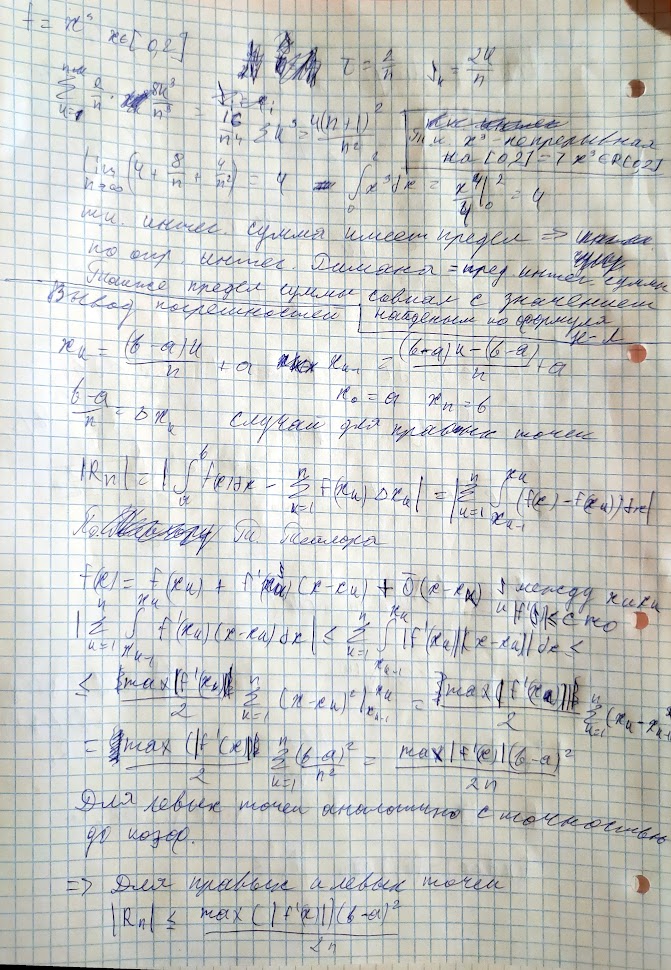 f = x³ x ∈ [0,2]
τ = 2/n ξₖ = 2k/n
∑ 2/n · 8k³/n³ = 16/n⁴ ∑k³ = 4(n+1)²/n²
x³ - непрерывная
на [0,2] => x³ ∈ R[0,2]
lim n→∞ (4 + 8/n + 4/n²) = 4 ∫₀² x³dx = x⁴/4 |₀² = 4
т.к. интег. сумма имеет предел =>
по опр. интег. Римана = пред интег. суммы
Также предел суммы совпал с значением
найденым по формуле
Н-Л
Вывод погрешностей
xₖ = (b-a)k/n + a xₖ₋₁ = ((b-a)k-(b-a))/n + a
x₀ = a xₙ = b
(b-a)/n = Δxₖ случай для правых точек
|Rₙ| = |∫ₐᵇ f(x)dx - ∑ₖ₌₁ⁿ f(xₖ)Δxₖ| = |∑ₖ₌₁ⁿ ∫ₓₖ₋₁ˣᵏ (f(x)-f(xₖ))dx|
Тейлора
f(x) = f(xₖ) + f'(xₖ)(x-xₖ) + ō(x-xₖ) ξ между
|∑ₖ₌₁ⁿ ∫ₓₖ₋₁ˣᵏ f'(xₖ)(x-xₖ)dx| ≤ ∑ₖ₌₁ⁿ ∫ₓₖ₋₁ˣᵏ |f'(xₖ)||x-xₖ|dx ≤
≤ max|f'(xₖ)|/2 ∑ₖ₌₁ⁿ (x-xₖ)²|ₓₖ₋₁ˣᵏ = max|f'(xₖ)|/2 ∑ₖ₌₁ⁿ (xₖ-xₖ₋₁)²
= max(|f'(x)|)/2 ∑ₖ₌₁ⁿ (b-a)²/n² = max|f'(x)|(b-a)²/2n
Для левых точек аналогично с точностью
до
=> Для правых и левых точек
|Rₙ| ≤ max(|f'(x)|)(b-a)²/2n